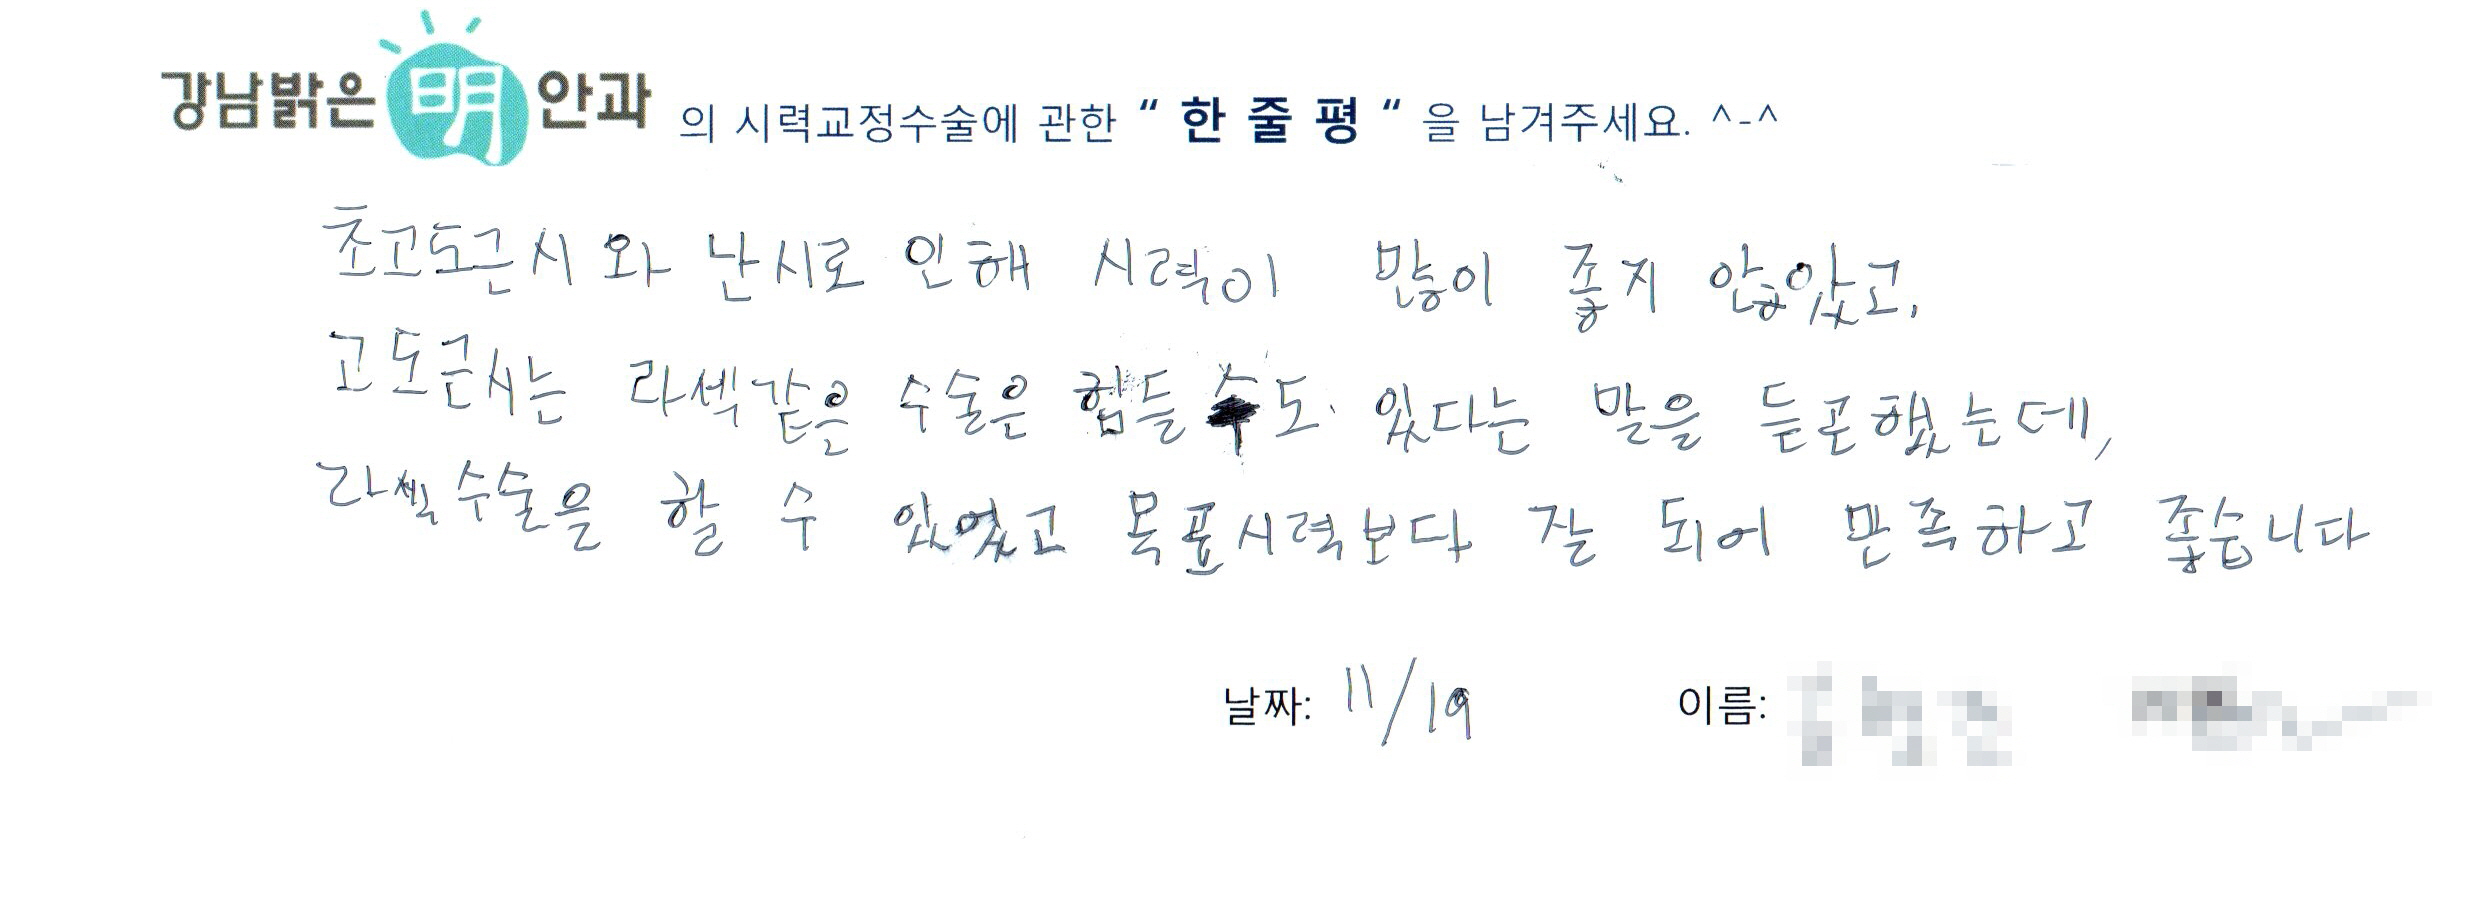 강남밝은 明 안과 의 시력교정수술에 관한 “ 한 줄 평 “ 을 남겨주세요. ^-^
초고도근시와 난시로 인해 시력이 많이 좋지 않았고,
고도근시는 라섹같은 수술은 힘들 수도 있다는 말을 듣곤했는데,
라섹수술을 할 수 있었고 목표시력보다 잘 되어 만족하고 좋습니다
날짜: 11/19 이름: